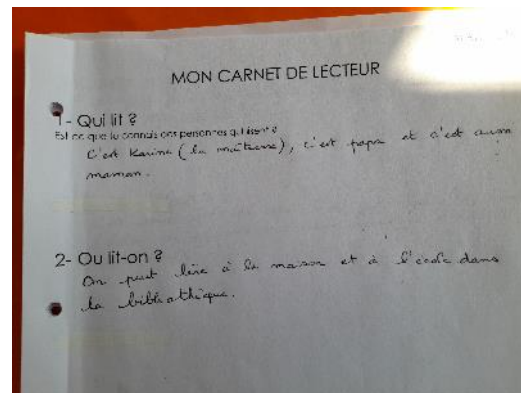 MON CARNET DE LECTEUR
1- Qui lit ?
Est ce que tu connais ces personnes qui lisent ?
C'est Karina (la maîtresse), c'est papa et c'est aussi
maman.
2- Ou lit-on ?
On peut lire à la maison et à l'école dans
la bibliothèque.